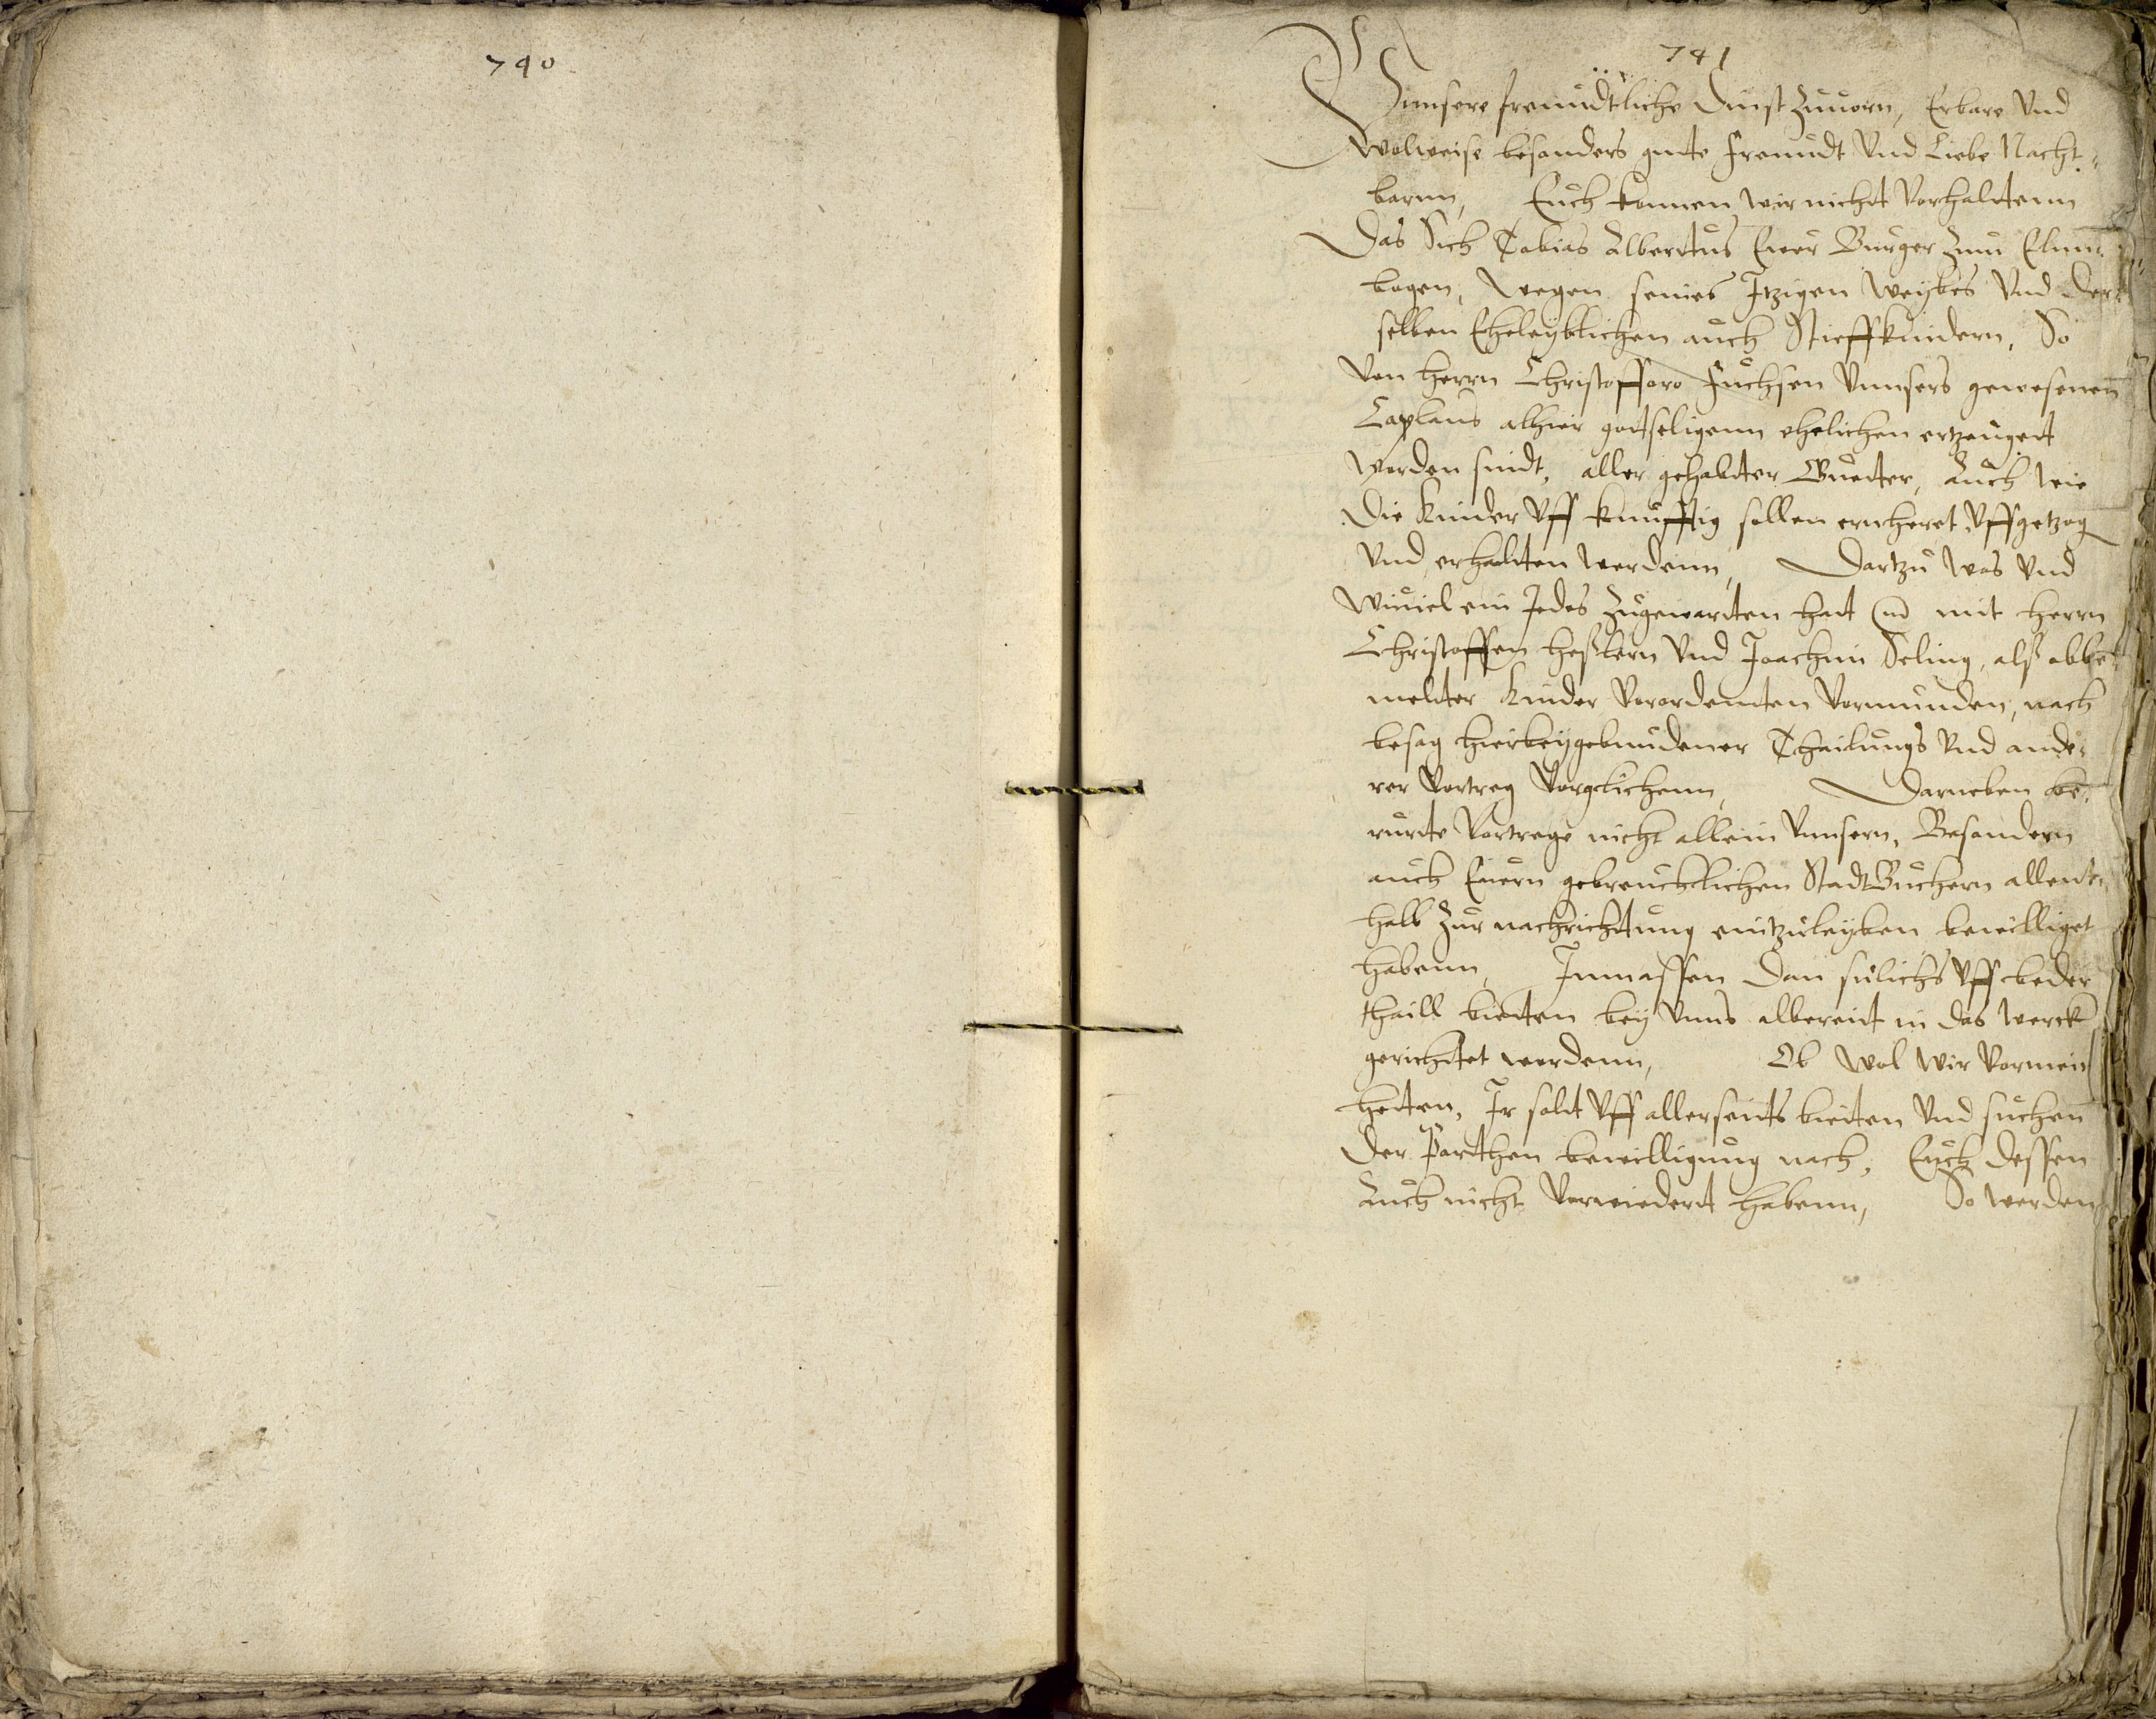 740
741
Vnnsere freundtliche Dinst Zuuorn, Erbare Vnd
Wolweise besonders gute freundt Vnd Liebe Nacht¬
barnn, Euch konnen wir nicht Vorhaltenn
Das Sich Tobias Albertus Ewer Burger Zum Elnn¬
bogen, Wegen seines Itzigen Weijbes Vnd Der¬
selben Eheleijblichen auch Stieffkindern, So
Von Herrn Christofforo Fuchsen Vnnsers gewesenen
Caplans alhier gottseligenn ehelichen ertzeuget
worden sindt, aller gehabter Guetter, Auch wie
Die Kinder Vff kunfftig sollen erneheret Vffgetzog
Vnd erhalten werdenn, Dartzu Was Vnd
Wiuiel ein Jedes Zugewarten hat mit Herrn
Christoffen Heßlern Vnd Joachim Seling, alß obbe¬
melter Kinder Verordenten Vormunden, nach
besag hierbeijgebundener Theilungs Vnd ande¬
rer Vortreg Vorglichenn, Darneben be¬
rurte Vortrege nicht allein Vnnsern, Besondern
auch Euern gebreuchlichen StadtBuchern allent¬
halb Zur nachrichtung eintzuleijben bewilliget
habenn, Inmassen Dan sulichs Vff beder
thaill bieten beij Vnns albereit in das Werck
gerichtet wordenn, Ob Wol Wir Vormein
hetten, Ir solt Vff allerseits bieten Vnd suchen
Der Parthen bewilligung nach, Euch dessen
Auch nicht Vorwiedert habenn, So werden